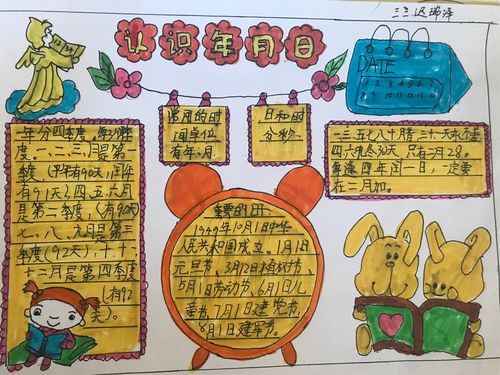 三三迟瑞泽
认识年月日
DATE
1 2 3 4 5 6 7
8 9 10 11 12 13
常用的时
间单位
有年、月、
日和时
分秒。
年分四季度,每3月季
度。一、二、三月是第一
季度(平年有90天,闰年
有91天),四、五、六月
是第二季度,(有90天)
七、八、九月是第三
季度(92天),十、十一
十二月是第四季度
(有92
天)。
一三五七八十腊三十一天永不差
四六九冬30天,只有二月28。
每逢四年闰一日,一定要
在二月加。
重要的日:
1949年10月1日中华
人民共和国成立。1月1日
元旦节、3月12日植树节、
5月1日劳动节、6月1日儿
童节、7月1日建党节、
8月1日建军节。